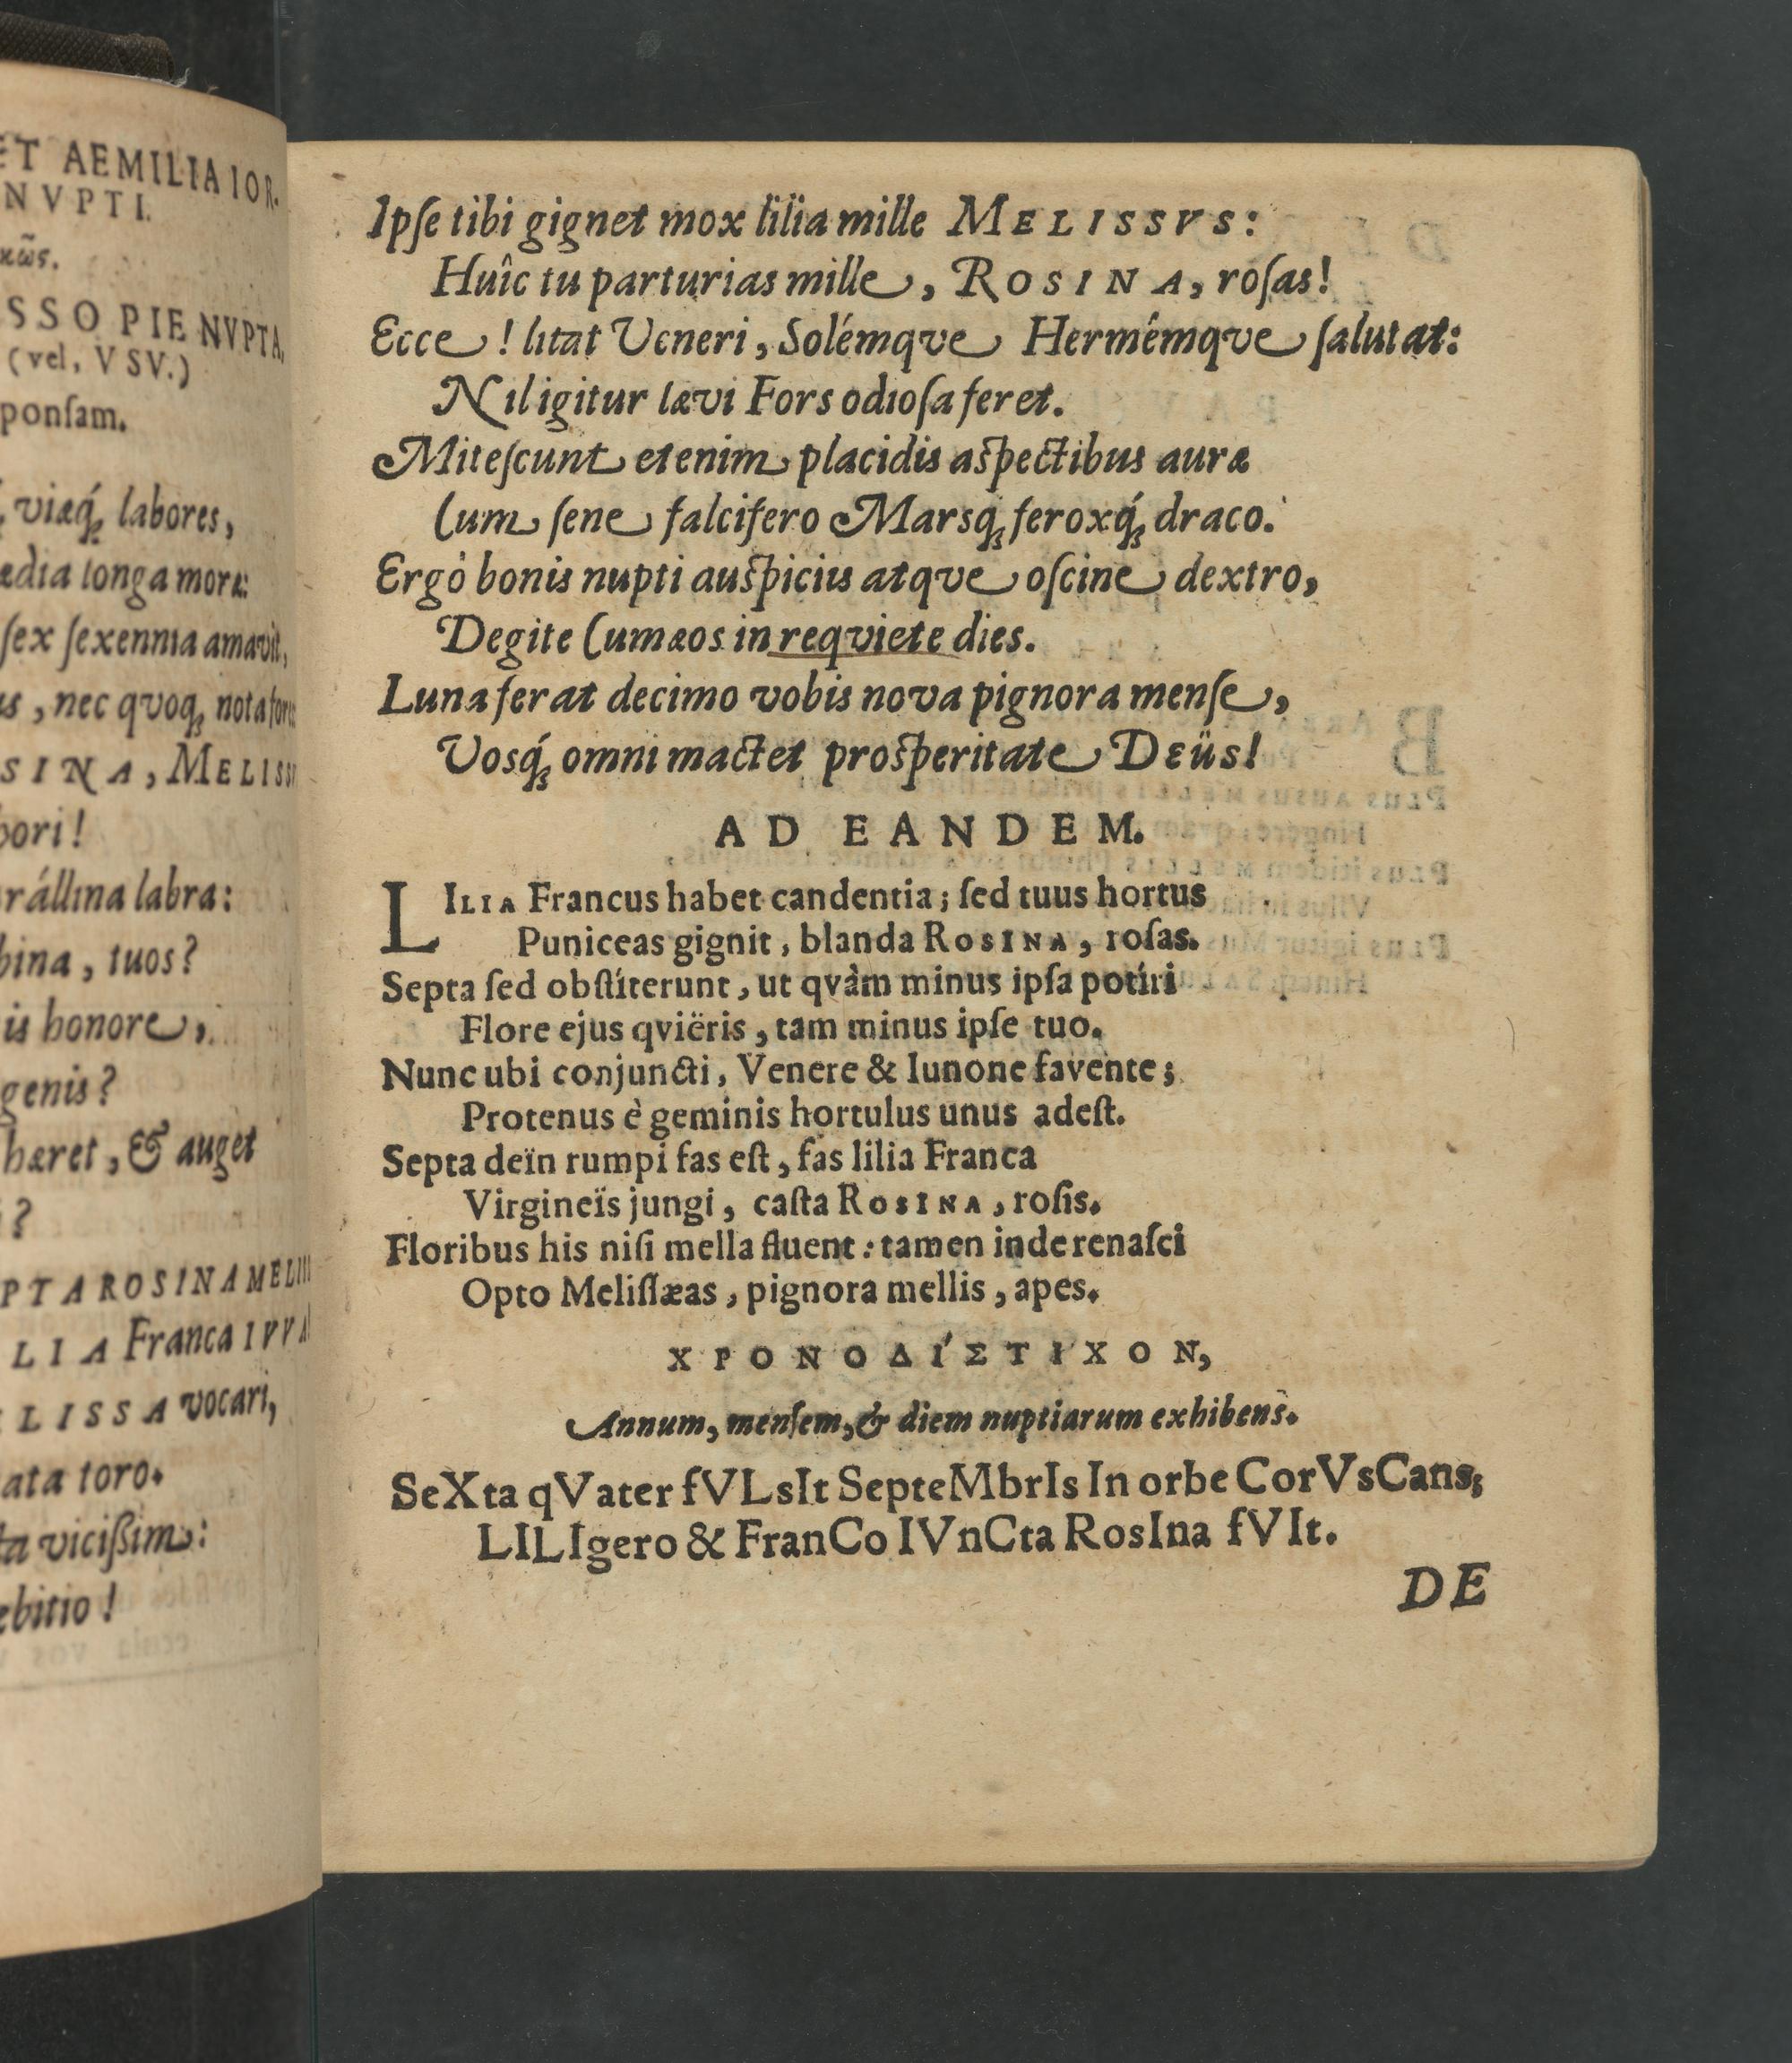 ET AEMILIA IOR.
NVPTI.
SSO PIE NVPTA,
(vel, VSV.)
ponſam.
viæq́ꝫ labores,
ædia longa moræ:
ſex ſexennia amavit,
us, nec quoqꝫ nota
SINA, MELISS
pori!
rállina labra:
bina, tuos?
is honore,
genis?
hæret, & auget
?
PTA ROSINA MELI
LIA Franca IVVA
LISSA vocari,
ata toro.
ta viciſsim:
ebitio!
Ipſe tibi gignet mox lilia mille MELISSVS:
Huîc tu parturias mille, ROSINA, roſas!
Ecce! litat Veneri, Solémqve Hermêmqve ſalutat:
Nil igitur lævi Fors odioſa feret.
Miteſcunt etenim placidis aſpectibus auræ
Cum ſene falcifero Marsq́ꝫ feroxq́ꝫ draco.
Ergò bonis nupti auſpiciis atqve oſcine dextro,
Degite Cumæos in reqviete dies.
Luna ferat decimo vobis nova pignora menſe,
Vosq́ꝫ omni mactet proſperitate DEüs!
AD EANDEM.
LILIA Francus habet candentia; ſed tuus hortus
Puniceas gignit, blanda ROSINA, roſas.
Septa ſed obſtíterunt, ut qvàm minus ipſa potíri
Flore ejus qviëris, tam minus ipſe tuo.
Nunc ubi conjuncti, Venere & Iunone favente;
Protenus è geminis hortulus unus adeſt.
Septa deïn rumpi fas eſt, fas lilia Franca
Virgineïs jungi, caſta ROSINA, roſis.
Floribus his niſi mella fluent: tamen inde renaſci
Opto Meliſſæas, pignora mellis, apes.
ΧΡΟΝΟΔΊΣΤΙΧΟΝ,
Annum, menſem, & diem nuptiarum exhibens.
SeXta qVater fVLsIt SepteMbrIs In orbe CorVsCans;
LILIgero & FranCo IVnCta RosIna fVIt.
DE